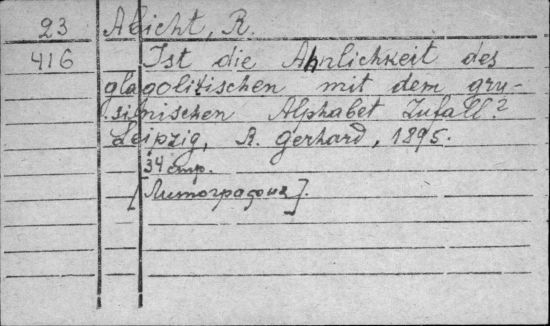 23 Abicht, R.
416 Ist die Ahnlichkeit des
glagolitischen mit dem gru-
sinischen Alphabet Zufall?
Leipzig, R. Gerhard, 1895.
34 стр.
[Литография].